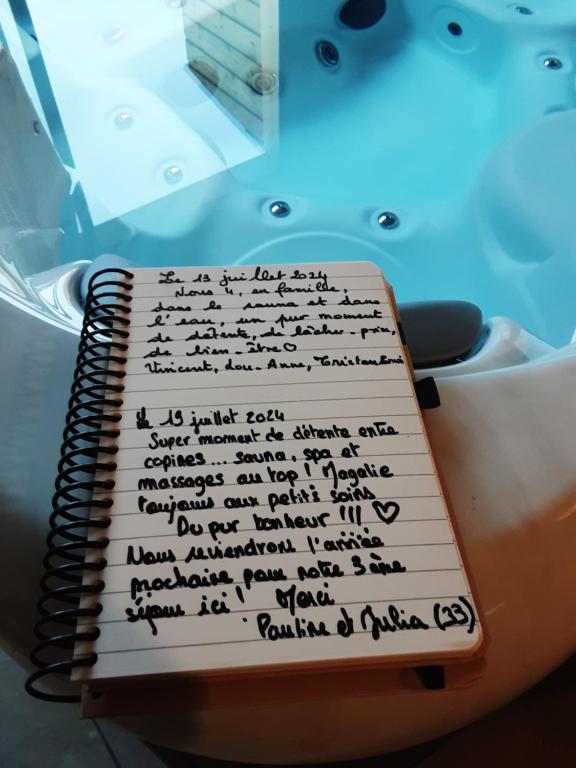 Le 13 juillet 2024
Nous 4, en famille,
dans le sauna et dans
l'eau, un pur moment
de détente, de lâcher-prise,
de bien-être ♡
Vincent, Lou-Anne, Tristan
Le 19 juillet 2024
Super moment de détente entre
copines... sauna, spa et
massages au top ! Magalie
toujours aux petits soins
Du pur bonheur !!! ♡
Nous reviendrons l'année
prochaine pour notre 3ème
séjour ici ! Merci
Pauline et Julia (33)